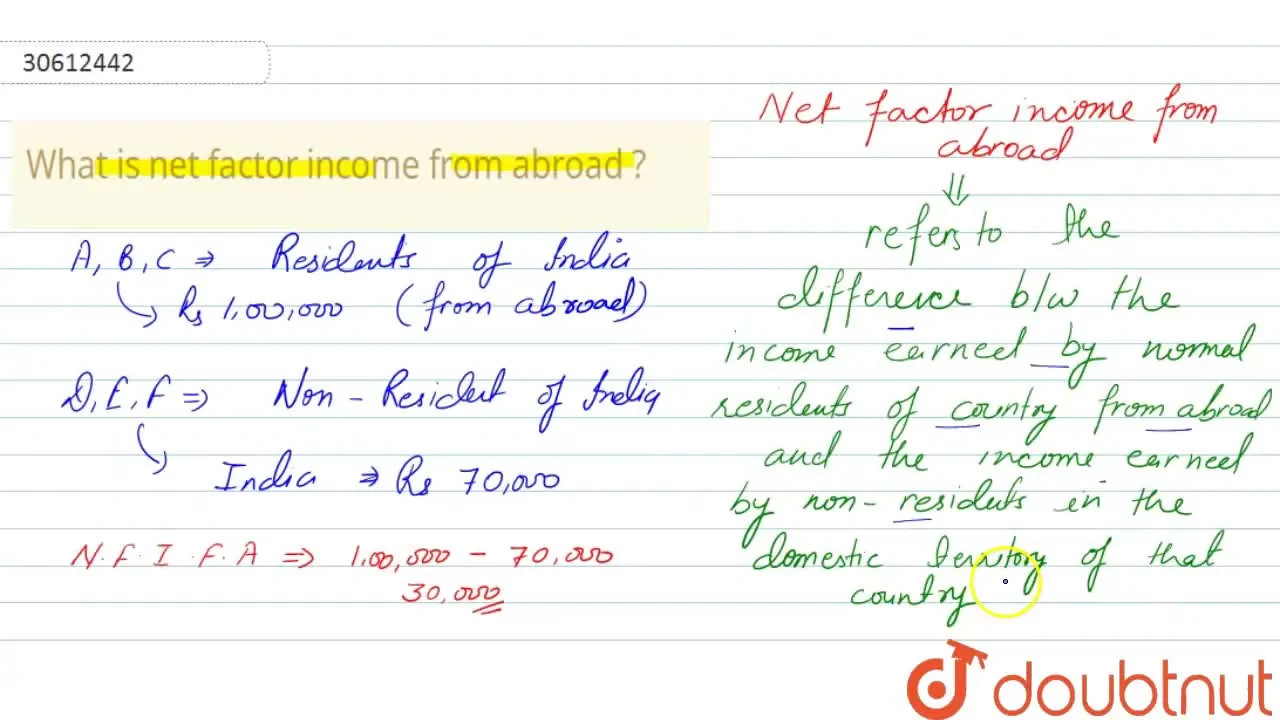 30612442
What is net factor income from abroad ?
A, B, C ⇒ Residents of India
↳ Rs 1,00,000 (from abroad)
D, E, F ⇒ Non - Resident of India
↳ India ⇒ Rs 70,000
N.F.I.F.A ⇒ 1,00,000 - 70,000
30,000
Net factor income from
abroad
⇓
refers to the
difference b/w the
income earned by normal
residents of country from abroad
and the income earned
by non-residents in the
domestic territory of that
country
doubtnut